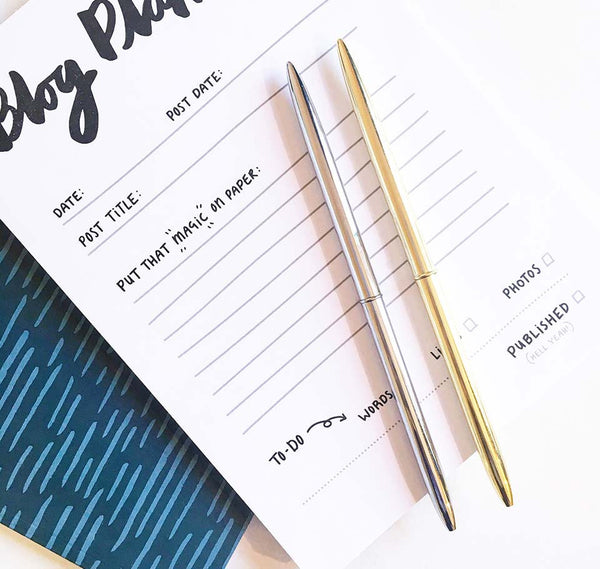 Blog
POST DATE:
DATE:
POST TITLE:
PUT THAT "MAGIC" ON PAPER:
TO-DO WORDS PHOTOS
PUBLISHED
(HELL YEAH!)